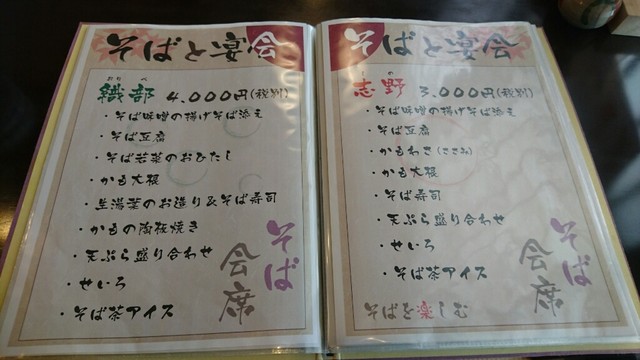 そばと宴会
おりべ
織部 4,000円(税別)
・そば味噌の揚げそば添え
・そば豆腐
・そば若菜のおひたし
・かも大根
・生湯葉のお造り&そば寿司
・かもの陶板焼き
・天ぷら盛り合わせ
・せいろ
・そば茶アイス
そば会席
そばと宴会
志野 3,000円(税別)
・そば味噌の揚げそば添え
・そば豆腐
・かもわさ(ささみ)
・かも大根
・そば寿司
・天ぷら盛り合わせ
・せいろ
・そば茶アイス
そば会席
そばを楽しむ